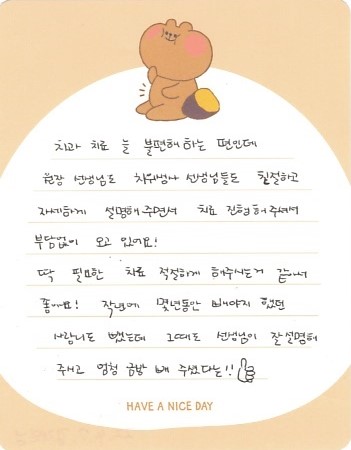 치과 치료 늘 불편해 하는 편인데
원장 선생님도 치위생사 선생님들도 친절하고
자세하게 설명해 주면셔 치료 진행해 주셔서
부담없이 오고 있어요!
딱 필요한 치료 적절하게 해주시는거 같아서
좋아요! 작년에 몇년동안 빼야지 했던
사랑니도 뺐는데 그때도 선생님이 잘 설명해
주시고 엄청 금방 빼 주셨다는!!
HAVE A NICE DAY